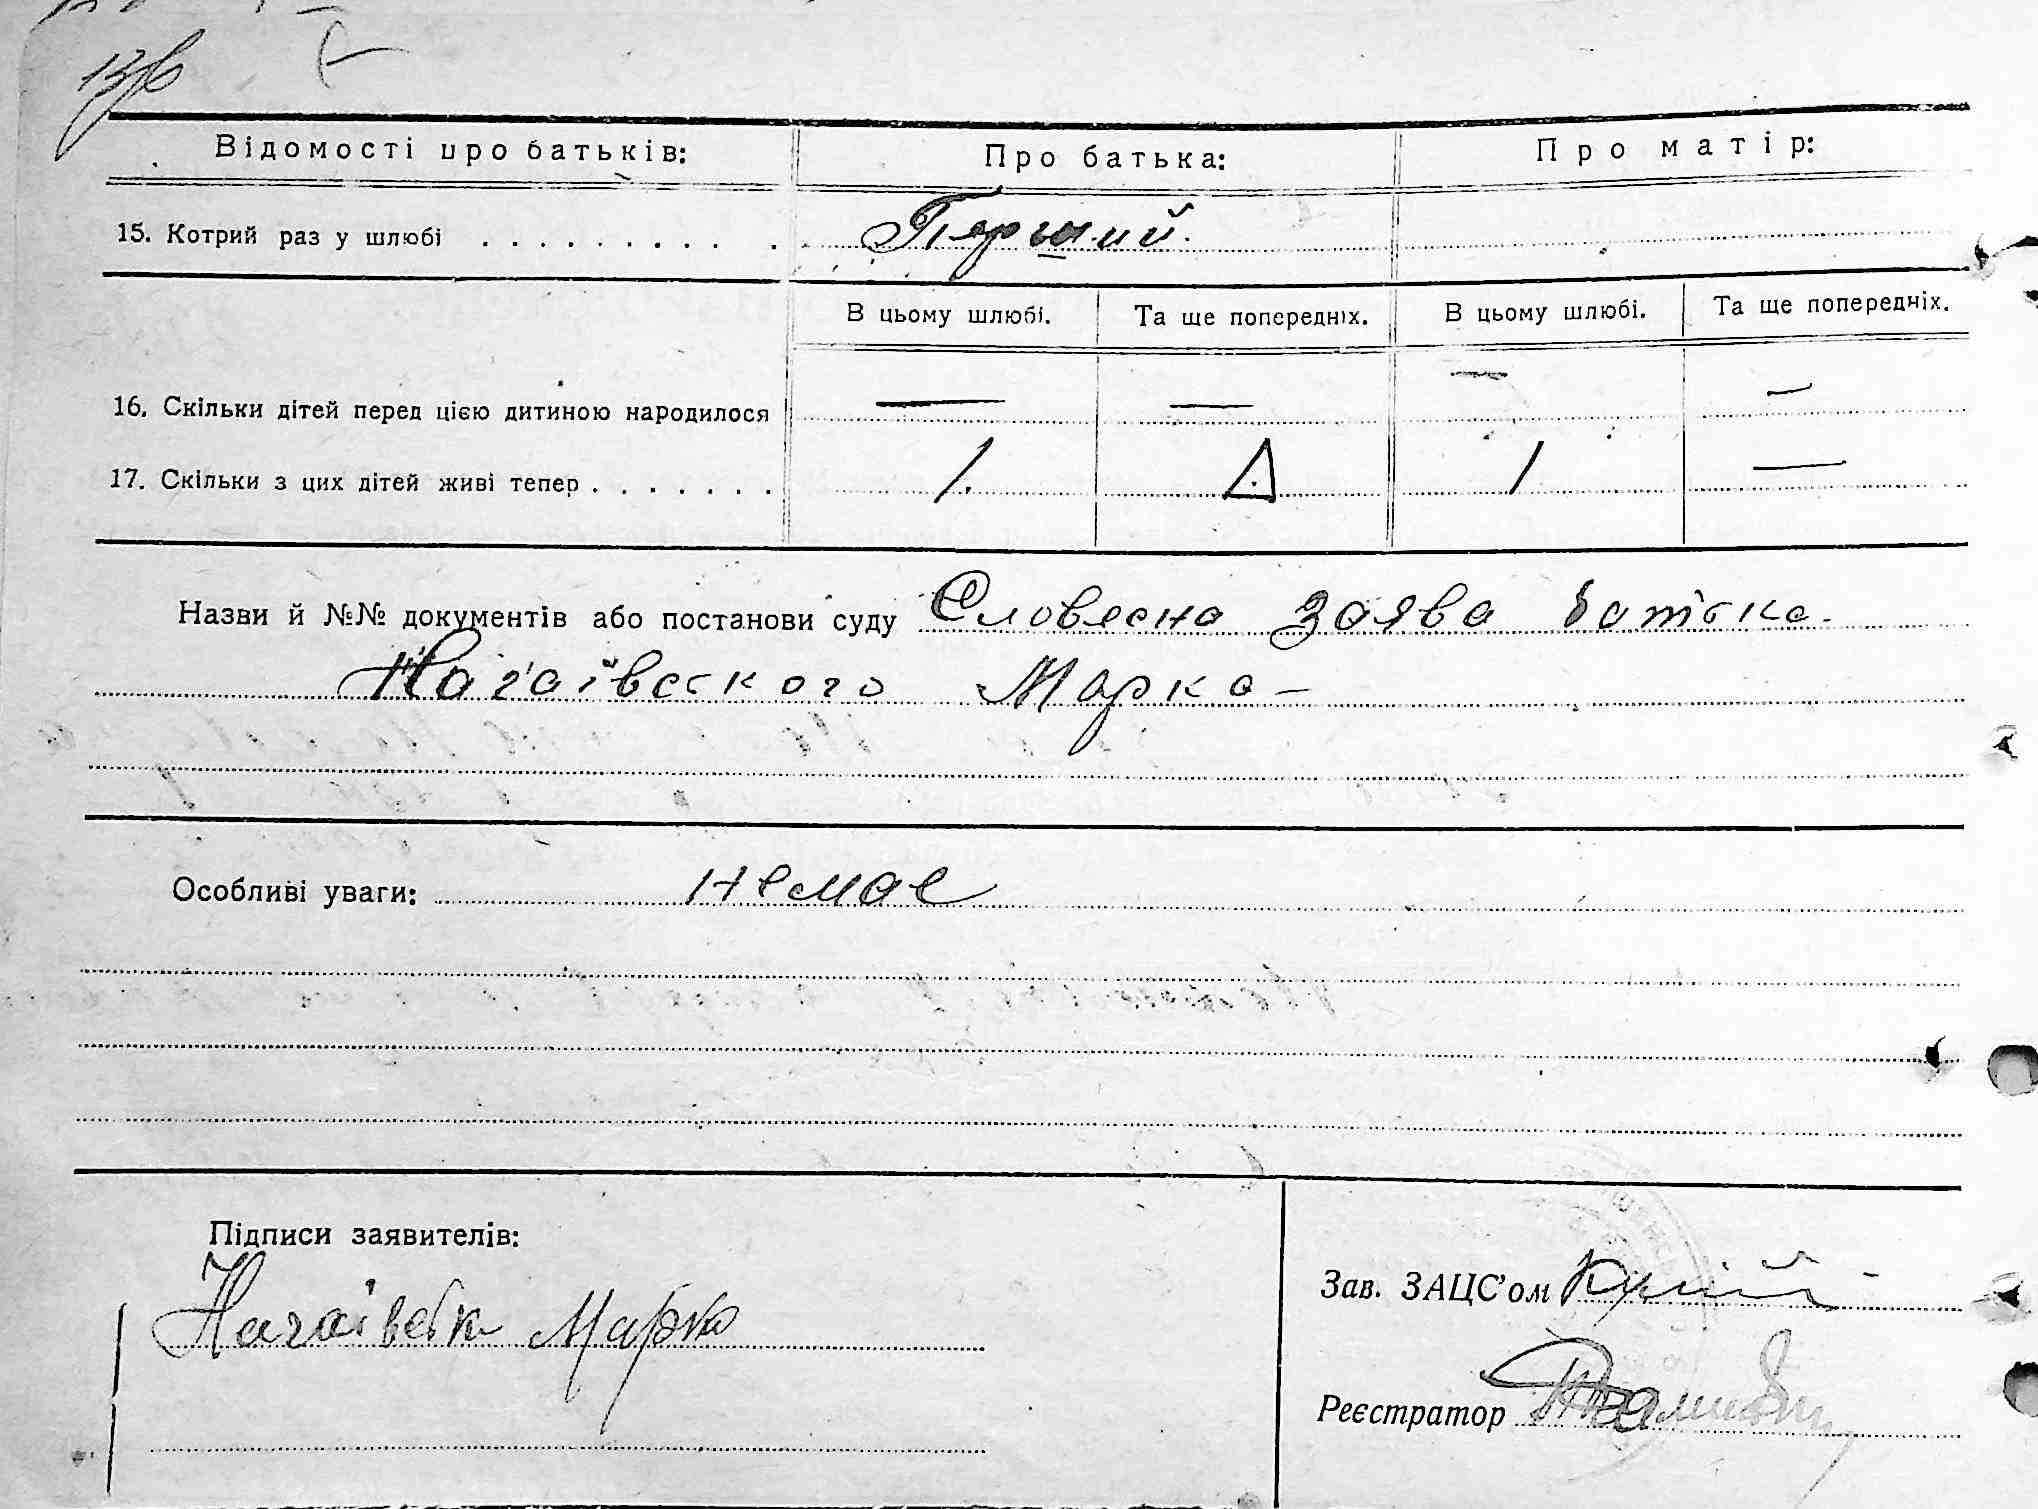 Відомості про батьків: Про батька: Про матір:
15. Котрий раз у шлюбі . . . . . . . . . . Перший.
В цьому шлюбі. Та ще попередніх. В цьому шлюбі. Та ще попередніх.
16. Скільки дітей перед цією дитиною народилося — — — —
17. Скільки з цих дітей живі тепер . . . . . . . 1. 1 —
Назви й №№ документів або постанови суду Словесна заява батька
Нагаївського Марка –
Особливі уваги: немає
Підписи заявителів:
Зав. ЗАЦС'ом
Нагаївськ Марко
Реєстратор